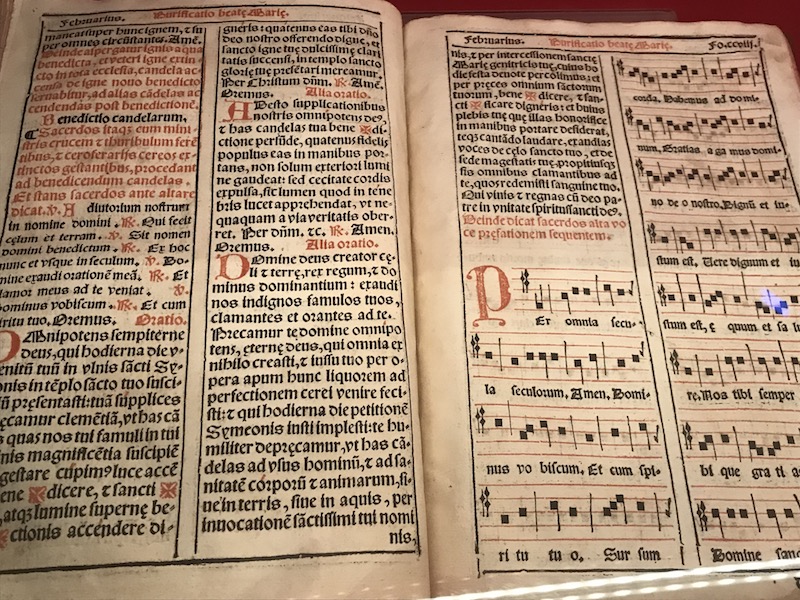 Februarius.
Purificatio beatę Marię.
maneat super hunc ignem, ⁊ su
per omnes circūstantes. Amē.
Deinde aspergatur ignis aqua
benedicta, et veteri igne extin
cto in tota ecclesia, candela ac
censa de igne nouo benedicto
seruabitur, ad alias cādelas ac
cendendas post benedictionē.
Benedictio candelarum.
Sacerdos itaqz cum mini
stris crucem ⁊ thuribulum ferē
tibus, ⁊ ceroferarijs cereos ex
tinctos gestantibus, procedant
ad benedicendum candelas.
Et stans sacerdos ante altare
dicat. ℣. Adiutorium nostrum
in nomine domini. ℟. Qui fecit
cęlum et terram. ℣. Sit nomen
domini benedictum. ℟. Ex hoc
nunc et vsque in seculum. ℣. Do-
mine exaudi orationē meā. ℟. Et
clamor meus ad te veniat. ℣.
Dominus vobiscum. ℟. Et cum
spiritu tuo. Oremus. Oratio.
OMnipotens sempiterne
deus, qui hodierna die v-
genitū tuū in vlnis sācti Sy-
onis in tēplo sācto tuo susci-
pręsentasti: tuā supplices
ęcamur clemētiā, vt has cā
s quas nos tui famuli in tui
nis magnificētia suscipiē
gestare cupim⁹ luce accē
ene ✠ dicere, ⁊ sancti ✠
, atqz lumine supernę be-
ctionis accendere di-
gneris: quatenus eas tibi dño
deo nostro offerendo digne, et
sancto igne tuę dulcissimę clari
tatis succensi, in templo sancto
glorię tuę pręsētari mereamur.
Per Christum dñm. ℟. Amē.
Oremus. Alia oratio.
ADesto supplicationibus
nostris omnipotens de⁹,
⁊ has candelas tua bene ✠ di-
ctione perfūde, quatenus fidelis
populus eas in manibus por-
tans, non solum exteriori lumi
ne gaudeat: sed cęcitate cordis
expulsa, sic lumen quod in tene
bris lucet apprehendat, vt ne-
quaquam a via veritatis ober-
ret. Per dñm. ⁊c. ℟. Amen.
Oremus. Alia oratio.
DOmine deus creator cę-
li ⁊ terrę, rex regum, ⁊ do
minus dominantium: exaudi
nos indignos famulos tuos,
clamantes et orantes ad te.
Precamur te domine omnipo
tens, ęterne deus, qui omnia ex
nihilo creasti, ⁊ iussu tuo per o-
pera apum hunc liquorem ad
perfectionem cerei venire feci-
sti: ⁊ qui hodierna die petitionē
Symeonis iusti implesti: te hu-
militer depręcamur, vt has cā-
delas ad vsus hominū, ⁊ ad sa-
nitatē corporū ⁊ animarum, si-
ue in terris, siue in aquis, per
inuocationē sāctissimi tui nomi
nis,
Februarius.
Purificatio beatę Marię.
Fo.ccviii.
nis, ⁊ per intercessionem sanctę
Marię genitricis tuę, cuius ho
die festa deuote percolimus: et
per pręces omnium sanctorum
tuorum, bene ✠ dicere, ⁊ san-
cti ✠ ficare digneris: et huius
plebis tuę quę illas honorifice
in manibus portare desiderat,
teqz cantādo laudare, exaudias
voces de cęlo sancto tuo, et de
sede magestatis tuę. propitiusqz
sis omnibus clamantibus ad
te, quos redemisti sanguine tuo.
Qui viuis ⁊ regnas cū deo pa-
tre in vnitate spiritussancti de⁹.
Deinde dicat sacerdos alta vo
ce pręfationem sequentem.
PEr omnia secu-
la seculorum, Amen, Domi-
nus vo biscum, Et cum spi-
ri tu tu o. Sur sum
corda. Habemus ad do mi-
num, Gratias a ga mus domi-
no de o nostro, Dignū et iu-
stum est. Uere dignum et iu
stum est, ę quum et sa lu
re, Nos tibi semper
bi que gra ti as
Domine sanc